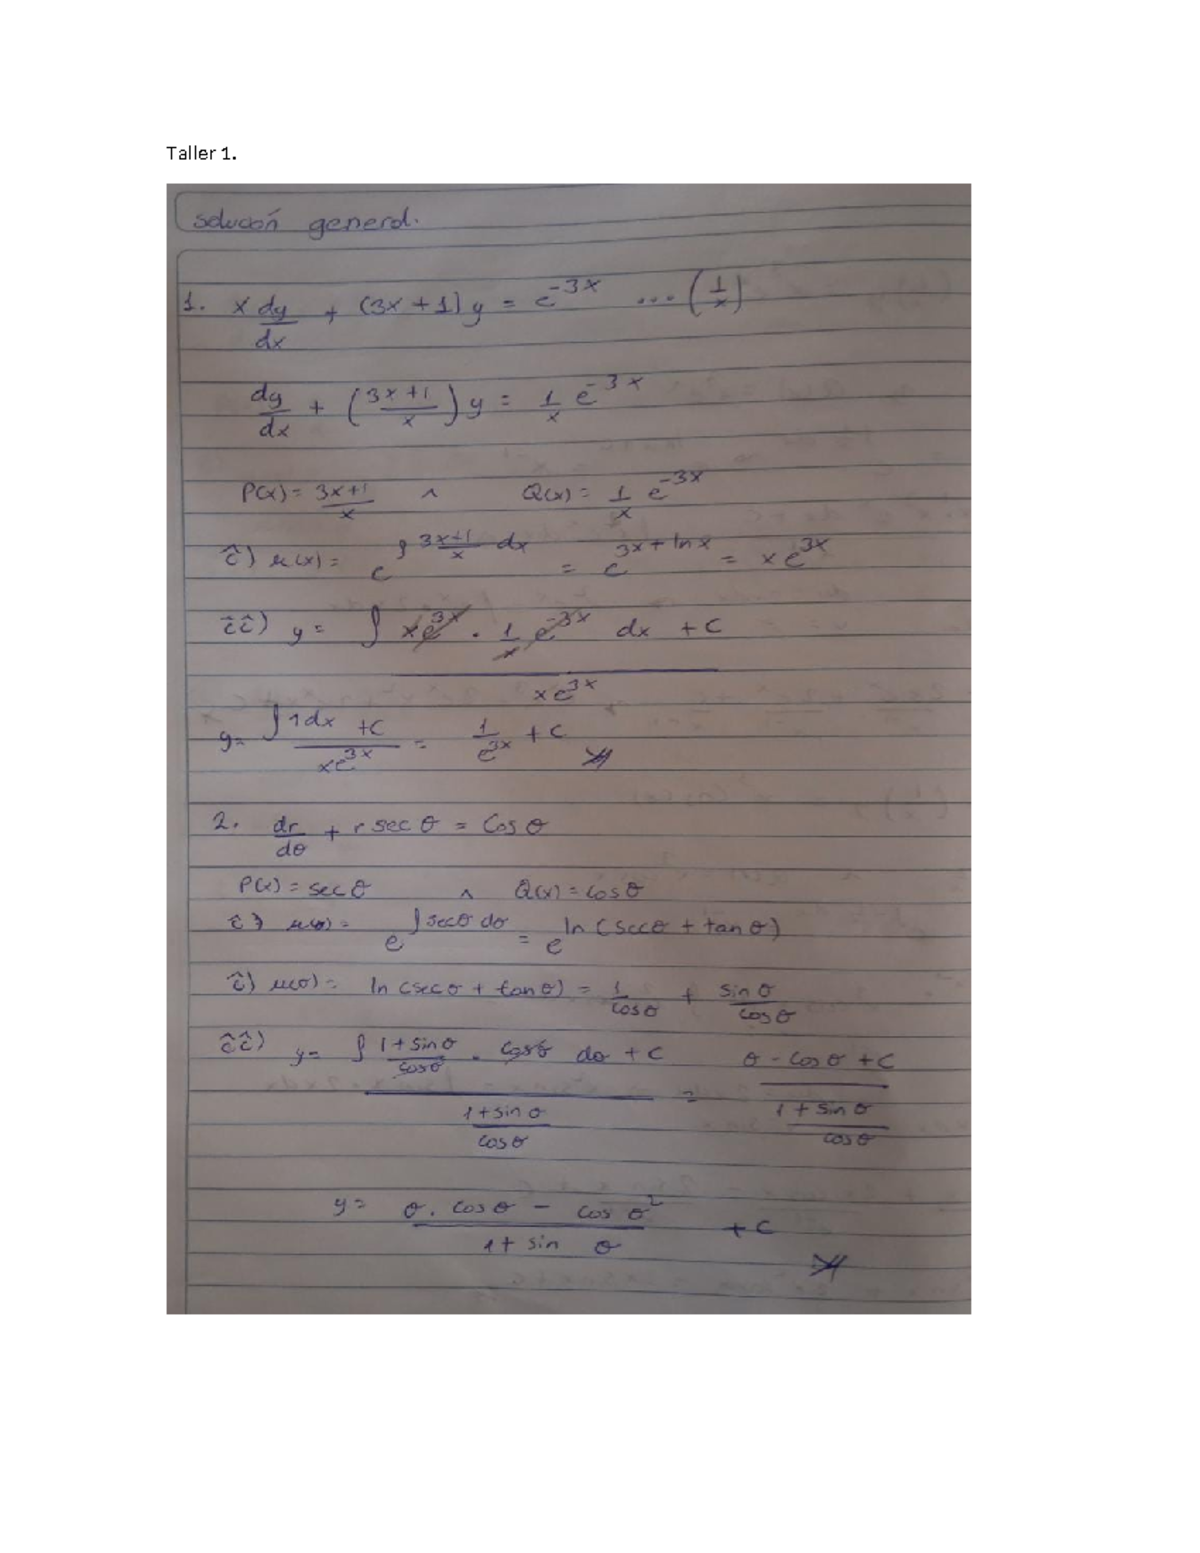 Taller 1.
solución general.
1. x dy/dx + (3x + 1) y = e^-3x ... (1/x)
dy/dx + (3x + 1/x) y = 1/x e^-3x
P(x) = 3x+1/x ^ Q(x) = 1/x e^-3x
î) μ(x) = e^∫ 3x+1/x dx = e^3x + ln x = x e^3x
îî) y = ∫ x e^3x . 1/x e^-3x dx + C / x e^3x
y = ∫ 1 dx + C / x e^3x = 1/e^3x + C
2. dr/dθ + r sec θ = Cos θ
P(x) = sec θ ^ Q(x) = cos θ
î) μ(θ) = e^∫ sec θ dθ = e^ln (sec θ + tan θ)
î) μ(θ) = ln (sec θ + tan θ) = 1/cos θ + sin θ/cos θ
îî) y = ∫ 1 + sin θ/cos θ . cos θ dθ + C / 1 + sin θ/cos θ = θ - cos θ + C / 1 + sin θ/cos θ
y = θ . cos θ - cos θ^2 / 1 + sin θ + C